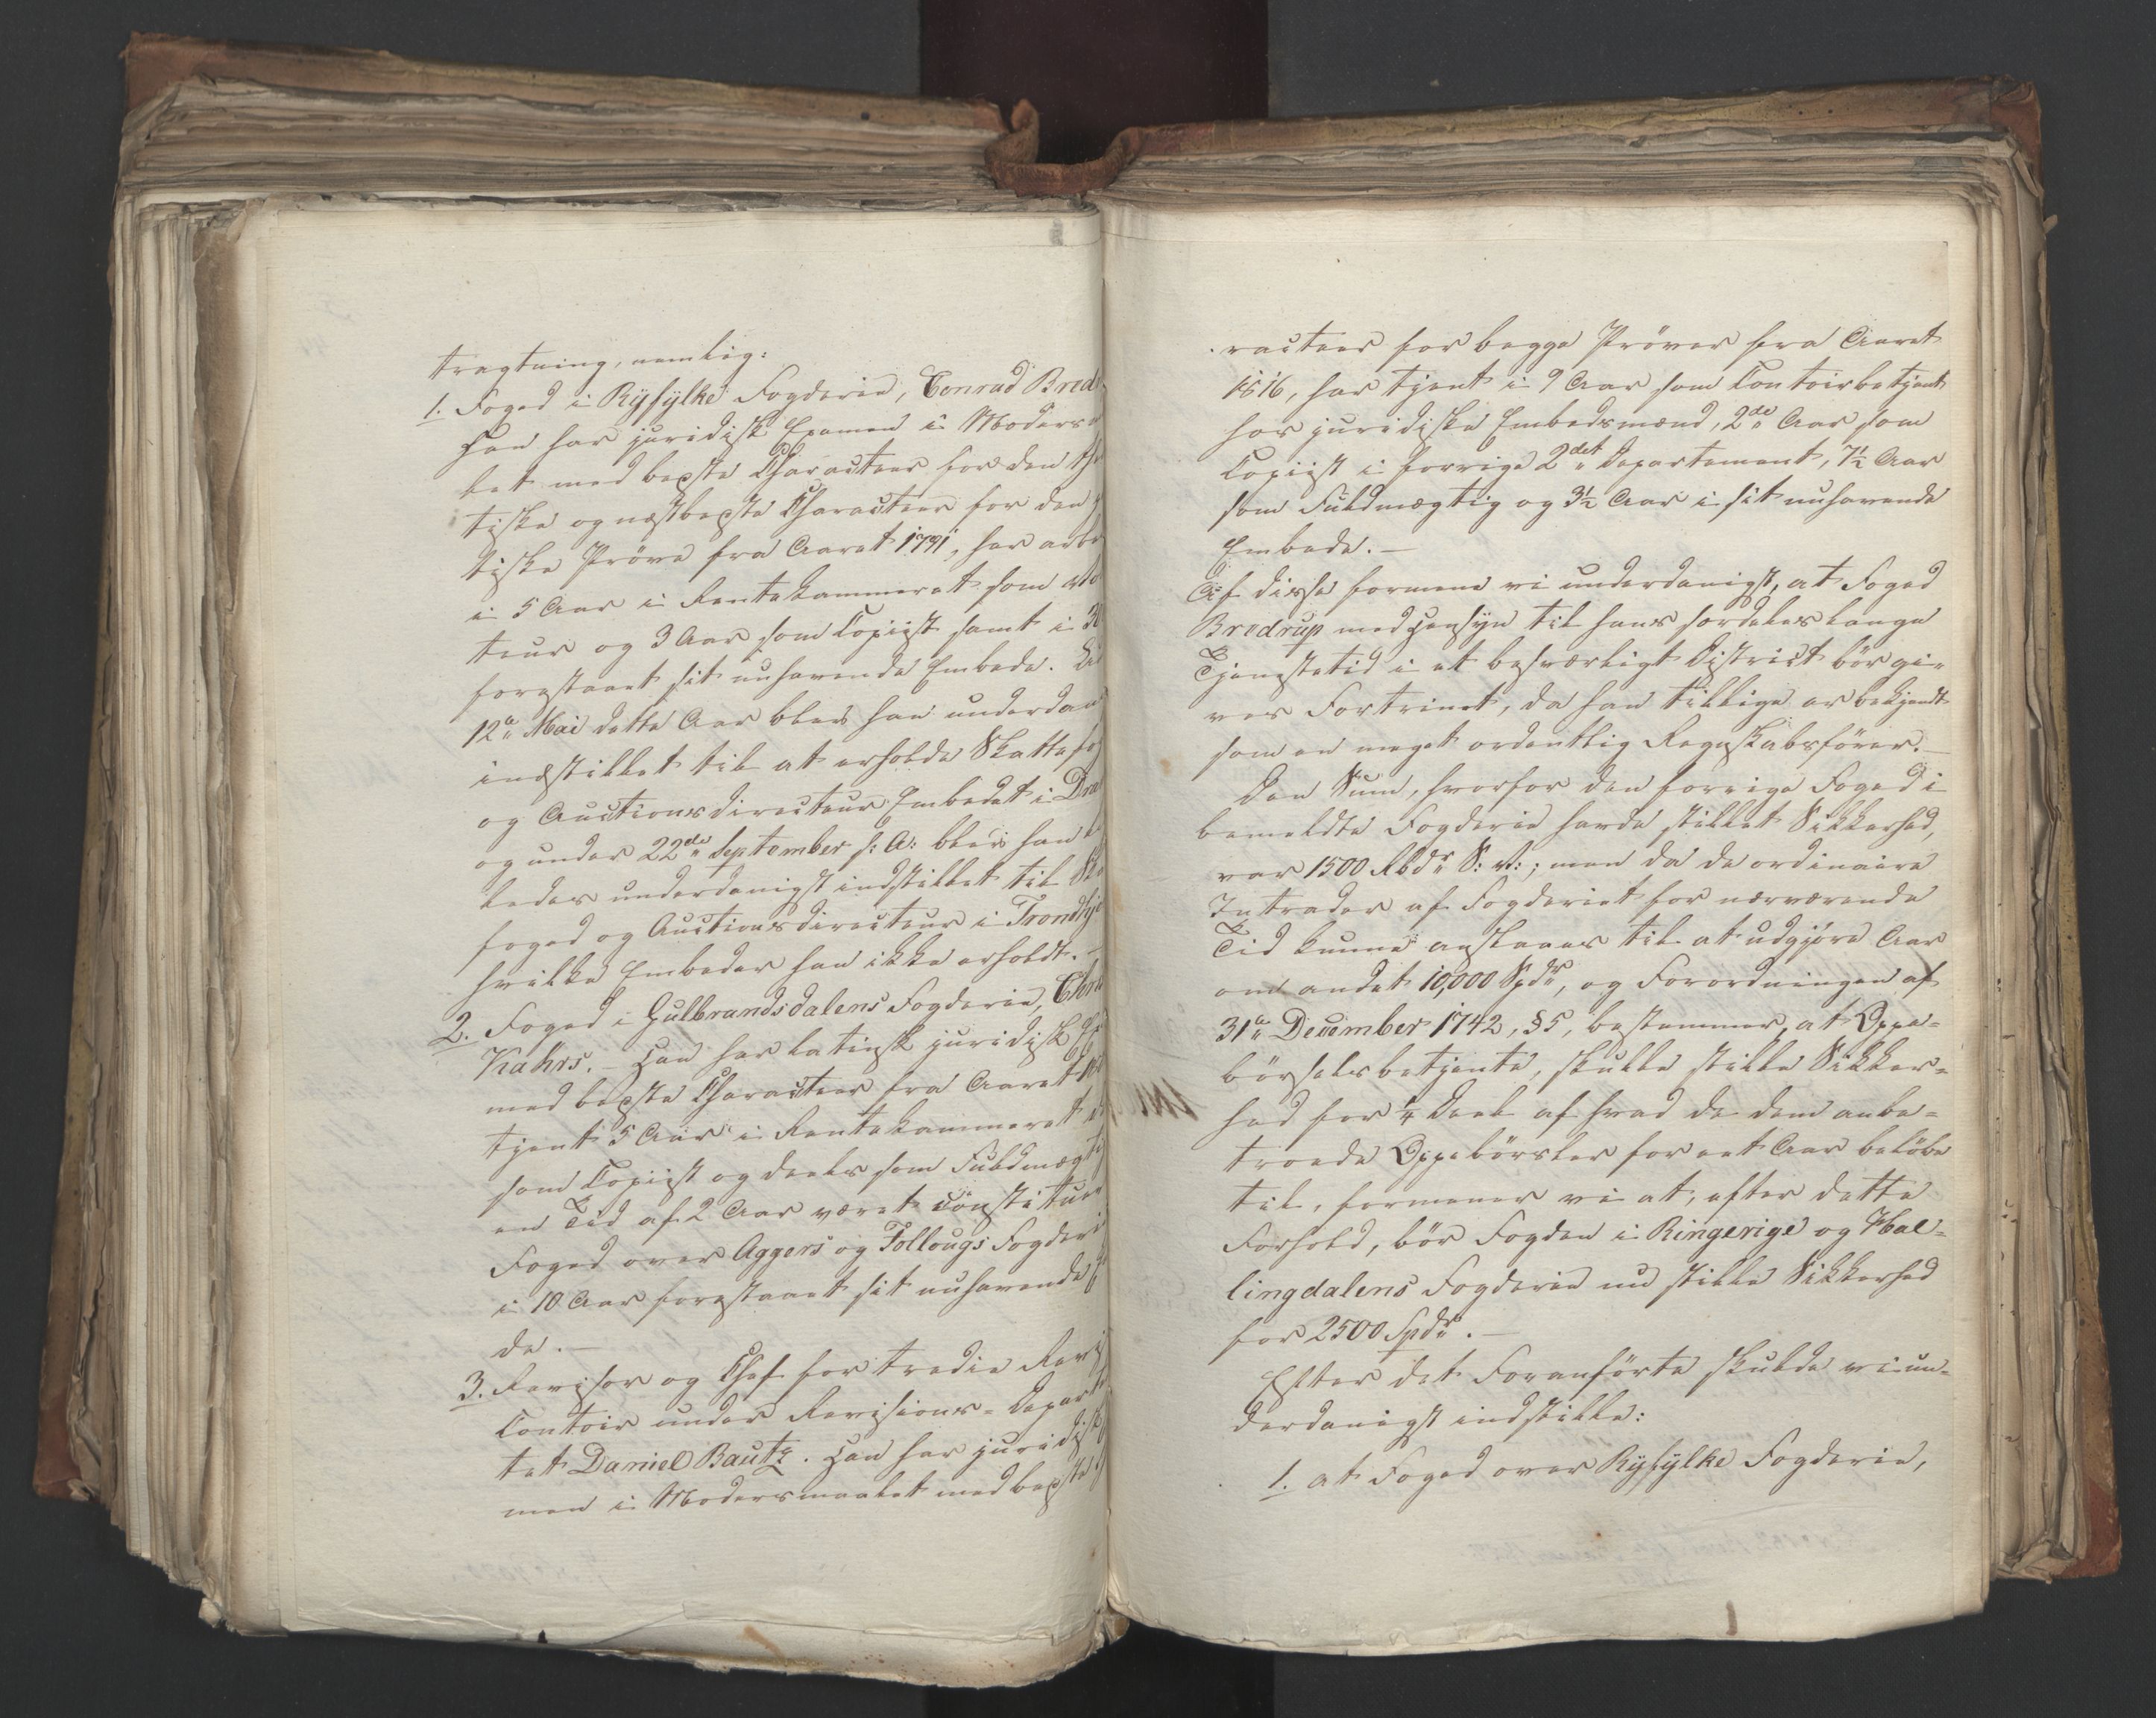 tragtning, nemlig:
1. Foged i Ryfylke Fogderie, Conrad Bred
Han har juridisk Examen i Modersm
let med bedste Characteer for den the
tiske og næstbedste Characteer for den p
tiske Pröve fra Aaret 1791, har arbe
i 5 Aar i Rentekammeret som Vo
teur og 3 Aar som Copiist samt i 30
forestaaet sit nuhavende Embede. Un
12te Mai dette Aar blev han underdan
indstillet til at erholde Skattefog
og Auctionsdirecteur Embedet i Dra
og under 22de September s: A: blev han l
ledes underdanigst indstillet til Sk
foged og Auctionsdirecteur i Trondhje
hvilke Embeder han ikke erholdt. –
2. Foged i Gulbrandsdalens Fogderie, Chri
Kahrs. – Han har latinsk juridisk Ex
med bedste Characteer fra Aaret 18
tjent 5 Aar i Rentekammeret d
som Copiist og deels som Fuldmægti
en Tid af 2 Aar været constituer
Foged over Aggers og Follougs Fogderi
i 10 Aar forestaaet sit nuhavende E
de. –
3. Revisor og Chef for tredie Revi
Contoir under Revisions-Departe
tet Daniel Bautz. Han har juridisk
men i Modersmaalet med bedste
racteer for begge Pröver fra Aaret
1816, har tjent i 9 Aar som Contoirbetjent
hos juridiske Embedsmænd, 2de Aar som
Copiist i forrige 2det Departement, 7½ Aar
som Fuldmægtig og 3½ Aar i sit nuhavende
Embede. –
Af disse formene vi underdanigst, at Foged
Bredrup med Hensyn til hans fordeles lange
Tjenestetid i et besværligt District bör gi-
ves Fortrinet, da han tillige er bekjendt
som en meget ordentlig Regnskabsförer. –
Den Sum, hvorfor den forrige Foged i
bemeldte Fogderie havde stillet Sikkerhed,
var 1500 Rbdr S: V:; men da de ordinaire
Intrader af Fogderiet for nærværende
Tid kunne ansl aaes til at udgjöre Aar
om andet 10,000 Spdr, og Forordningen af
31te December 1742, §5, bestemmer, at Oppe-
börselsbetjente, skulle stille Sikker-
hed for ¼ Deel af hvad de dem anbe-
troede Oppebörsler for eet Aar belöbe
til, formener vi at, efter dette
Forhold, bör Fogden i Ringerige og Hal-
lingdalens Fogderie nu stille Sikkerhed
for 2500 Spdr. –
Efter det Foranförte skulde vi un-
derdanigst indstille:
1. at Foged over Ryfylke Fogderie,